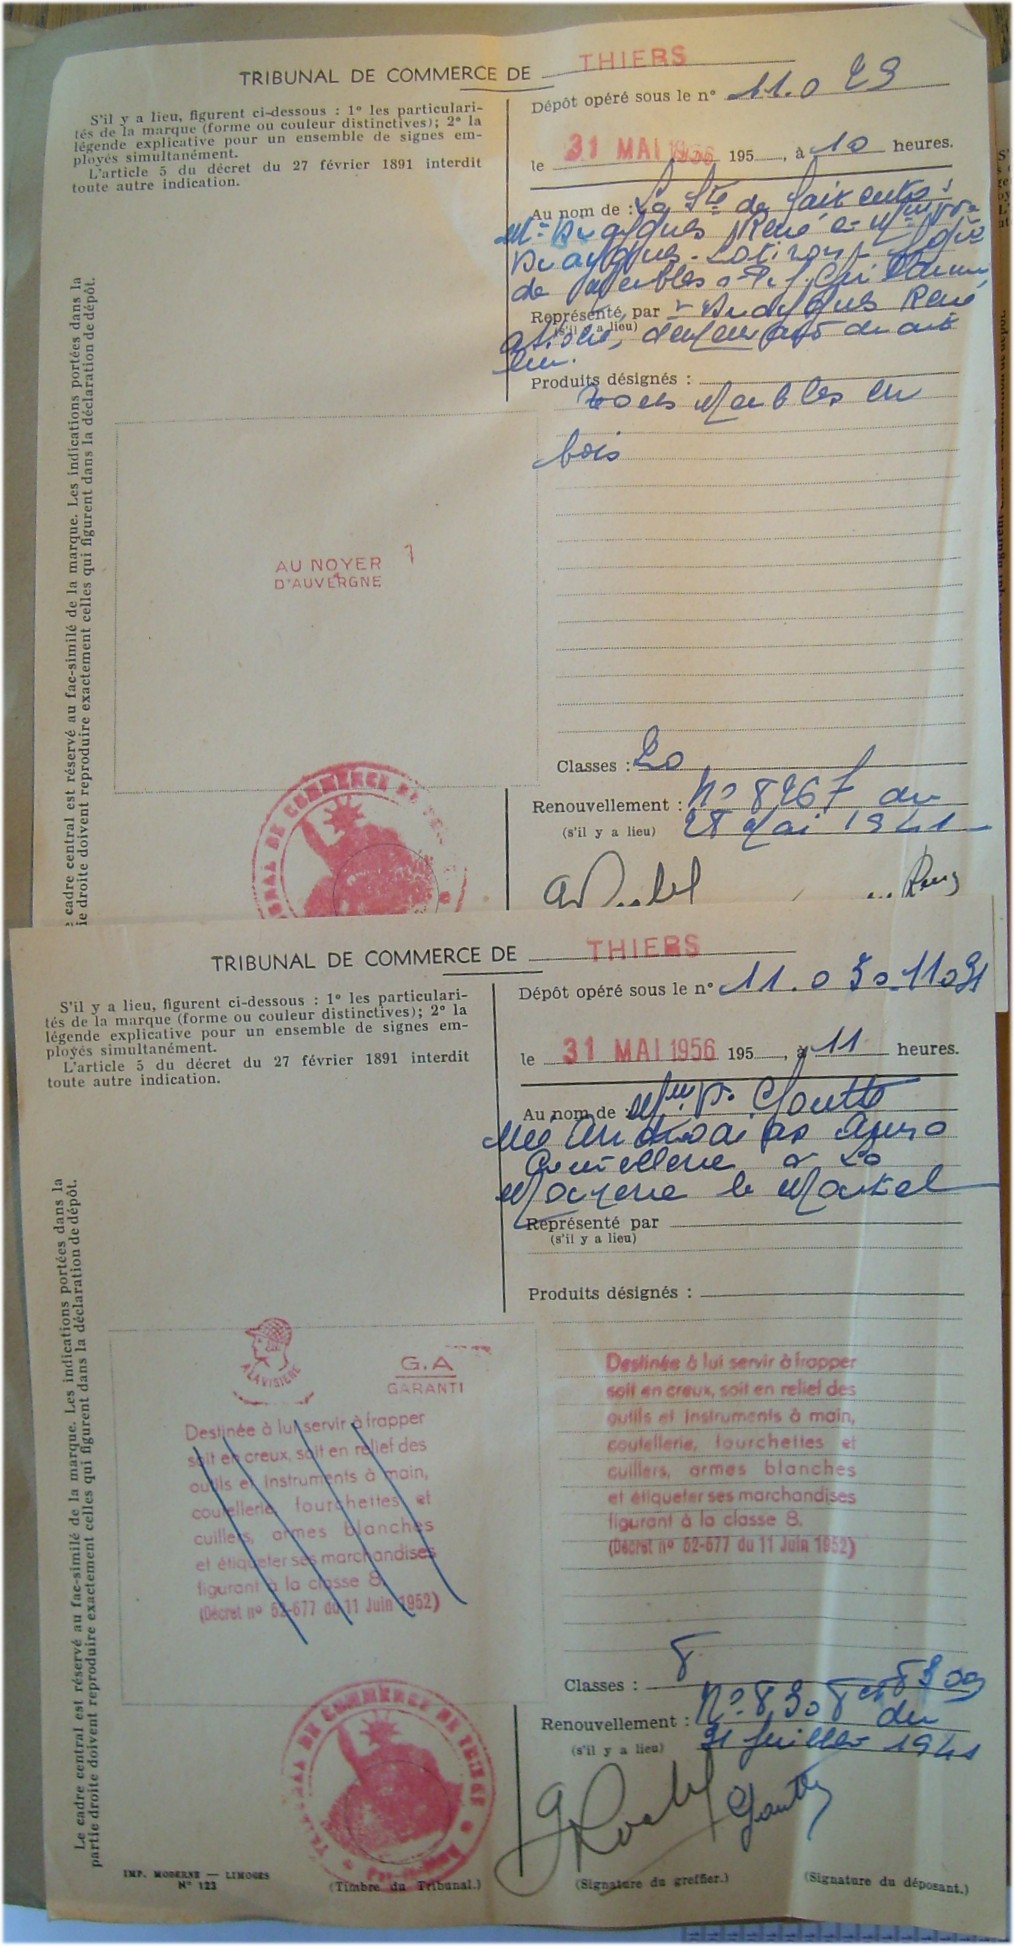 TRIBUNAL DE COMMERCE DE THIERS
S'il y a lieu, figurent ci-dessous : 1º les particulari-
tés de la marque (forme ou couleur distinctives); 2º la
légende explicative pour un ensemble de signes em-
ployés simultanément.
L'article 5 du décret du 27 février 1891 interdit
toute autre indication.
Dépôt opéré sous le nº 11.029
le 31 MAI 1956 195 , à 10 heures.
Au nom de : La Sté de fait entre :
René
de meubles
Représenté par René
(s'il y a lieu)
Produits désignés :
Tous Meubles en
bois
cadre central est réservé au fac-similé de la marque. Les indications portées dans la
ie droite doivent reproduire exactement celles qui figurent dans la déclaration de dépôt.
AU NOYER
D'AUVERGNE
Classes : 20
Renouvellement : Nº 8267 du
(s'il y a lieu) 28 Mai 1941
DE COMMERCE DE
TRIBUNAL DE COMMERCE DE THIERS
S'il y a lieu, figurent ci-dessous : 1º les particulari-
tés de la marque (forme ou couleur distinctives); 2º la
légende explicative pour un ensemble de signes em-
ployés simultanément.
L'article 5 du décret du 27 février 1891 interdit
toute autre indication.
Dépôt opéré sous le nº 11.030 11031
le 31 MAI 1956 195 , à 11 heures.
Au nom de : Mme Vve Goutte
Née
Coutellerie à La
Monnerie le Montel
Représenté par
(s'il y a lieu)
Produits désignés :
Le cadre central est réservé au fac-similé de la marque. Les indications portées dans la
partie droite doivent reproduire exactement celles qui figurent dans la déclaration de dépôt.
A LA VISIERE
G.A
GARANTI
Destinée à lui servir à frapper
soit en creux, soit en relief des
outils et instruments à main,
coutellerie, fourchettes et
cuillers, armes blanches
et étiqueter ses marchandises
figurant à la classe 8.
(Décret nº 52-677 du 11 Juin 1952)
Destinée à lui servir à frapper
soit en creux, soit en relief des
outils et instruments à main,
coutellerie, fourchettes et
cuillers, armes blanches
et étiqueter ses marchandises
figurant à la classe 8.
(Décret nº 52-677 du 11 Juin 1952)
Classes : 8
Renouvellement : Nº 8308 et 8309 du
(s'il y a lieu) 31 Juillet 1941
TRIBUNAL DE COMMERCE DE THIERS
Goutte
IMP. MODERNE — LIMOGES
Nº 123
(Timbre du Tribunal.)
(Signature du greffier.)
(Signature du déposant.)